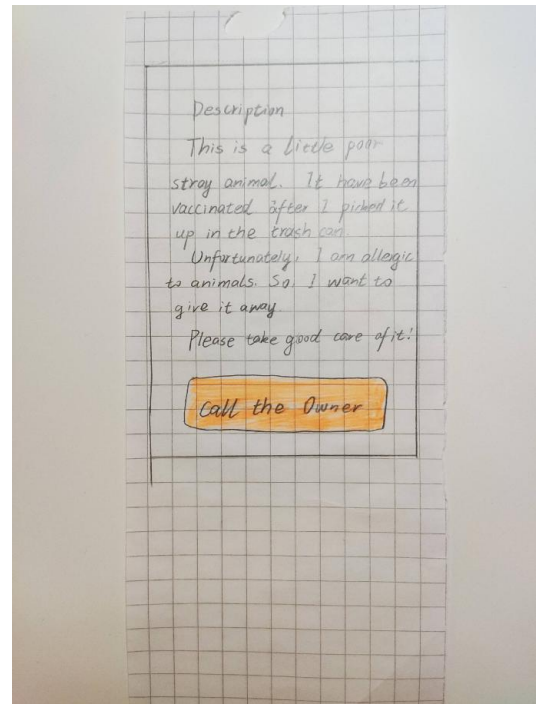 Description
This is a little poor
stray animal. It have been
vaccinated after I picked it
up in the trash can.
Unfortunately, I am allergic
to animals. So, I want to
give it away.
Please take good care of it!
Call the Owner